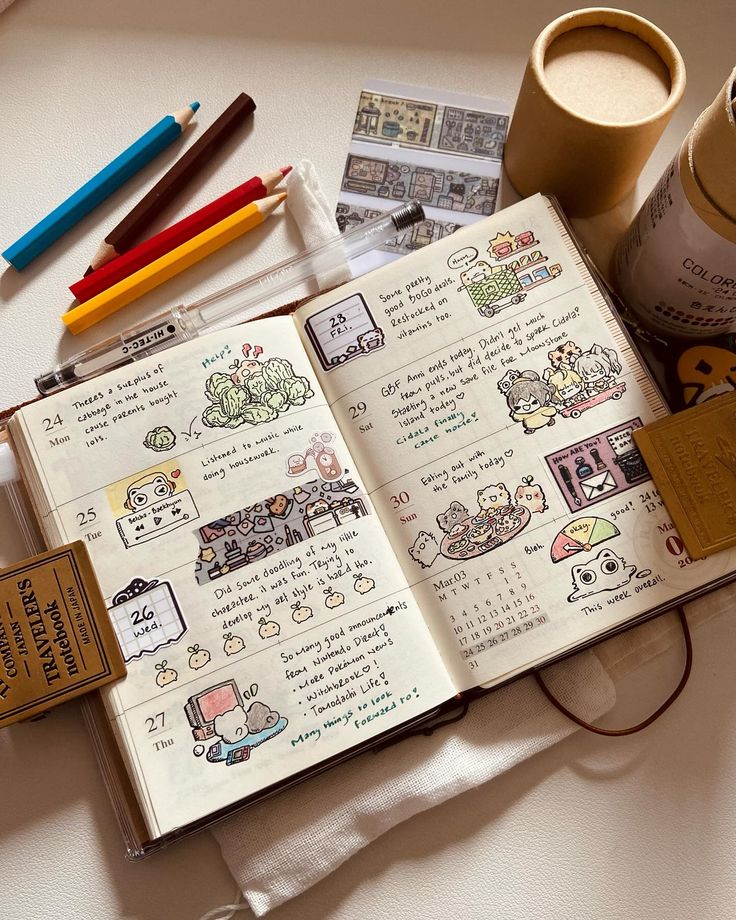 24
Mon
There's a surplus of
cabbage in the house
cause parents bought
lots.
Help!
25
Tues
Bekah - Baekhyun
Listened to music while
doing housework.
26
Wed.
Did some doodling of my little
character, it was fun. Trying to
develop my art style is hard tho.
27
Thu
So many good announcements
from Nintendo Direct!
• More Pokémon News
• Witchbrook!
• Tomodachi Life!
Many things to look
forward to!
28
Fri.
Some pretty
good BOGO deals.
Restocked on
vitamins too.
Hmm...
29
Sat
GBF Anni ends today. Didn't get much
from pulls, but did decide to spark Cidala.
Starting a new save file for Moonstone
Island today
Cidala finally
came home!
30
Sun
Eating out with
the family today
HOW ARE YOU?
NICE
Mar.03
M T W T F S S
1 2
3 4 5 6 7 8 9
10 11 12 13 14 15 16
17 18 19 20 21 22 23
24 25 26 27 28 29 30
31
Bleh.
okay.
good!
This week overall.
HI-TEC-C
TRAVELER'S
notebook
MADE IN JAPAN
COMPANY
JAPAN
COLORE
色えん